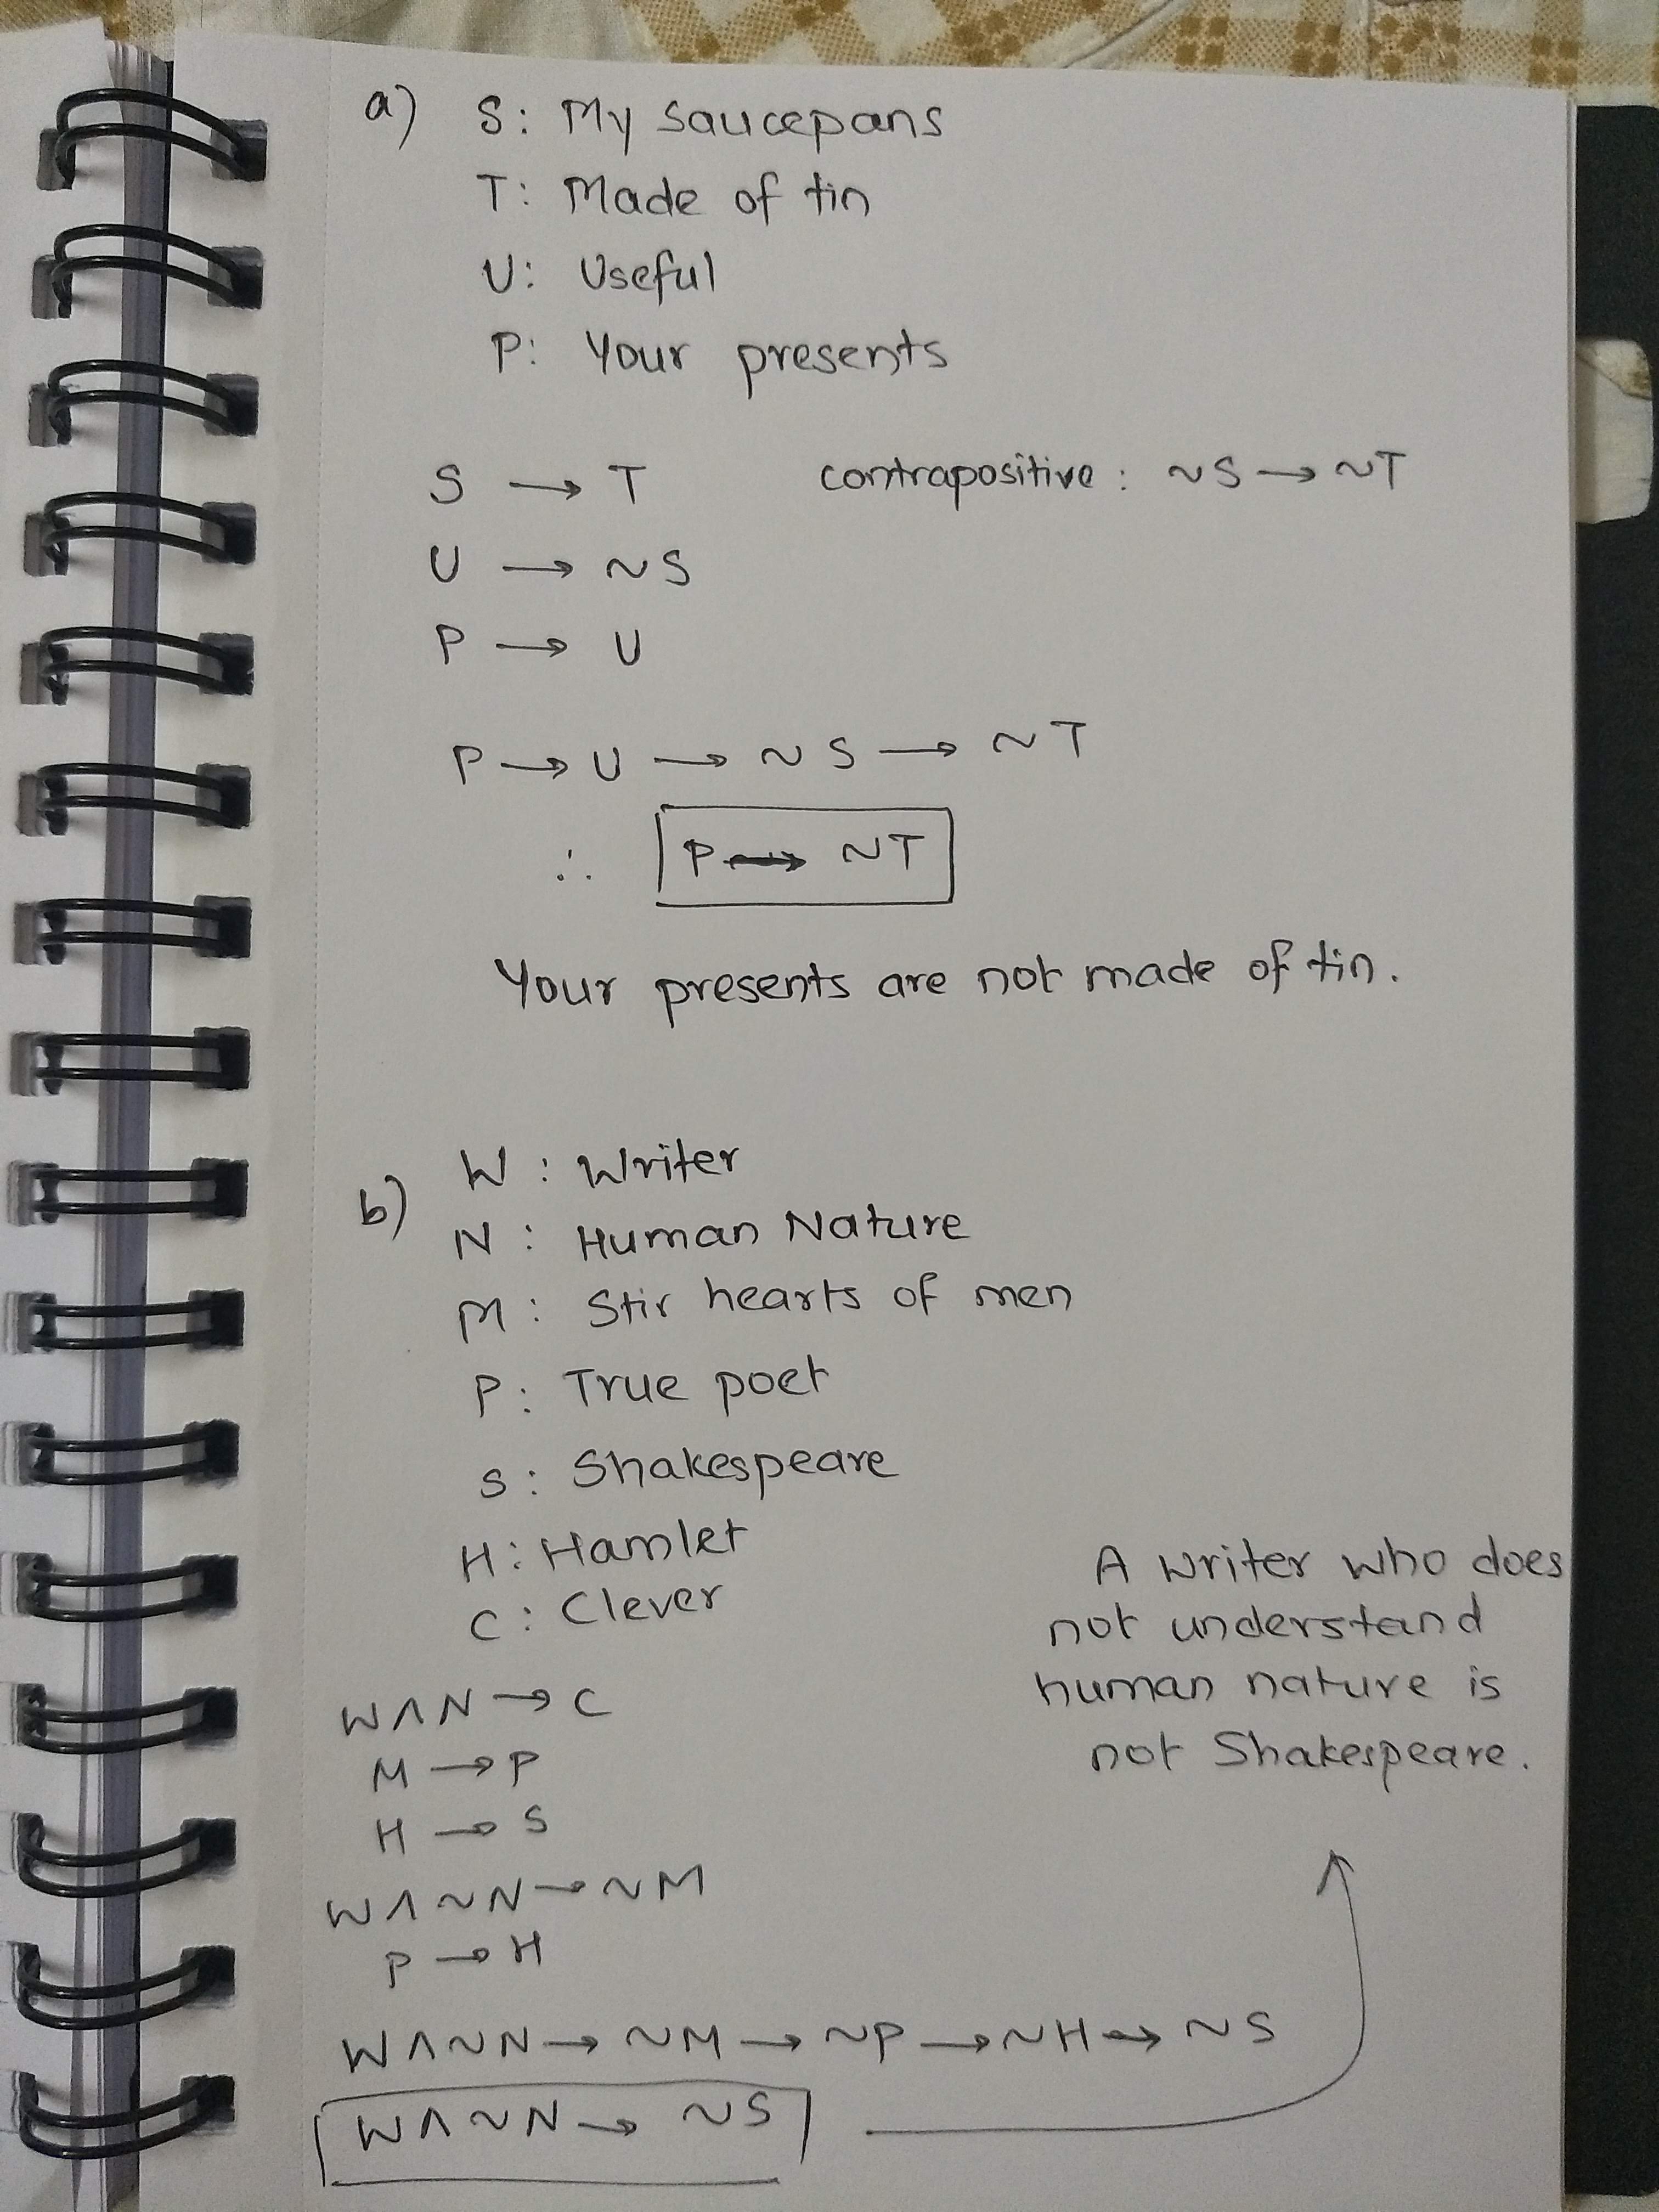 a) S: My saucepans
T: Made of tin
U: Useful
P: Your presents
S → T contrapositive: ~S → ~T
U → ~S
P → U
P → U → ~S → ~T
∴ P → ~T
Your presents are not made of tin.
b) W: Writer
N: Human Nature
M: Stir hearts of men
P: True poet
S: Shakespeare
H: Hamlet
C: Clever
W∧N → C
M → P
H → S
W∧~N → ~M
P → H
W∧~N → ~M → ~P → ~H → ~S
W∧~N → ~S
A writer who does
not understand
human nature is
not Shakespeare.